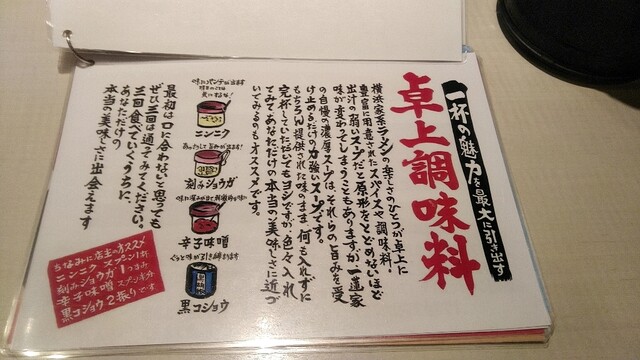 一杯の魅力を最大に引き出す
卓上調味料
横浜家系ラーメンの楽しさのひとつが卓上に
豊富に用意されたスパイスや調味料!
出汁の弱いスープだと原形をとどめないほど
味が変わってしまうこともありますが、一蓮家
の自慢の濃厚スープは、それらの旨みを受
け止めるだけの力強いスープです。
もちろん提供された味のまま何も入れずに
完杯していただいてもヨシですが、色々入れ
てみてあなただけの本当の美味しさに近づ
いてみるのもオススメです。
味にパンチが出ます
ニンニク
刻みショウガ
辛子味噌
ぐっと味が引き締まります
黒コショウ
最初は口に合わないと思っても
ぜひ三回は通ってみてください。
三回食べていくうちに、
あなただけの
本当の美味しさに出会えます
ちなみに店主のオススメ
ニンニクスプーン1杯
刻みショウガ1つまみ
辛子味噌スプーン半分
黒コショウ2振りです。